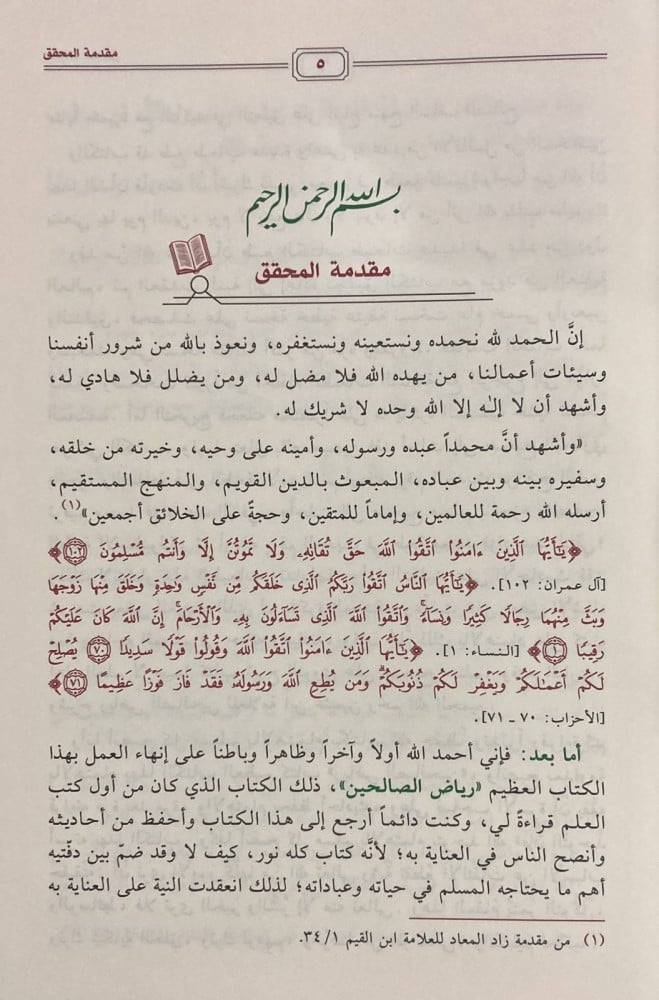 مقدمة المحقق
٥
بسم الله الرحمن الرحيم
مقدمة المحقق
إنَّ الحمد لله نحمده ونستعينه ونستغفره، ونعوذ بالله من شرور أنفسنا
وسيئات أعمالنا، من يهده الله فلا مضل له، ومن يضلل فلا هادي له،
وأشهد أن لا إلٰه إلا الله وحده لا شريك له.
«وأشهد أنَّ محمداً عبده ورسوله، وأمينه على وحيه، وخيرته من خلقه،
وسفيره بينه وبين عباده، المبعوث بالدين القويم، والمنهج المستقيم،
أرسله الله رحمة للعالمين، وإماماً للمتقين، وحجةً على الخلائق أجمعين»(١).
﴿يَٰٓأَيُّهَا ٱلَّذِينَ ءَامَنُوا۟ ٱتَّقُوا۟ ٱللَّهَ حَقَّ تُقَاتِهِۦ وَلَا تَمُوتُنَّ إِلَّا وَأَنتُم مُّسْلِمُونَ ١٠٢﴾
[آل عمران: ١٠٢]. ﴿يَٰٓأَيُّهَا ٱلنَّاسُ ٱتَّقُوا۟ رَبَّكُمُ ٱلَّذِى خَلَقَكُم مِّن نَّفْسٍ وَٰحِدَةٍ وَخَلَقَ مِنْهَا زَوْجَهَا
وَبَثَّ مِنْهُمَا رِجَالًا كَثِيرًا وَنِسَآءً ۚ وَٱتَّقُوا۟ ٱللَّهَ ٱلَّذِى تَسَآءَلُونَ بِهِۦ وَٱلْأَرْحَامَ ۚ إِنَّ ٱللَّهَ كَانَ عَلَيْكُمْ
رَقِيبًا ١﴾ [النساء: ١]. ﴿يَٰٓأَيُّهَا ٱلَّذِينَ ءَامَنُوا۟ ٱتَّقُوا۟ ٱللَّهَ وَقُولُوا۟ قَوْلًا سَدِيدًا ٧٠ يُصْلِحْ
لَكُمْ أَعْمَٰلَكُمْ وَيَغْفِرْ لَكُمْ ذُنُوبَكُمْ ۗ وَمَن يُطِعِ ٱللَّهَ وَرَسُولَهُۥ فَقَدْ فَازَ فَوْزًا عَظِيمًا ٧١﴾
[الأحزاب: ٧٠ ـ ٧١].
أما بعد: فإني أحمد الله أولاً وآخراً وظاهراً وباطناً على إنهاء العمل بهذا
الكتاب العظيم «رياض الصالحين»، ذلك الكتاب الذي كان من أول كتب
العلم قراءةً لي، وكنت دائماً أرجع إلى هذا الكتاب وأحفظ من أحاديثه
وأنصح الناس في العناية به؛ لأنَّه كتاب كله نور، كيف لا وقد ضمّ بين دفّتيه
أهم ما يحتاجه المسلم في حياته وعباداته؛ لذلك انعقدت النية على العناية به
(١) من مقدمة زاد المعاد للعلامة ابن القيم ٣٤/١.